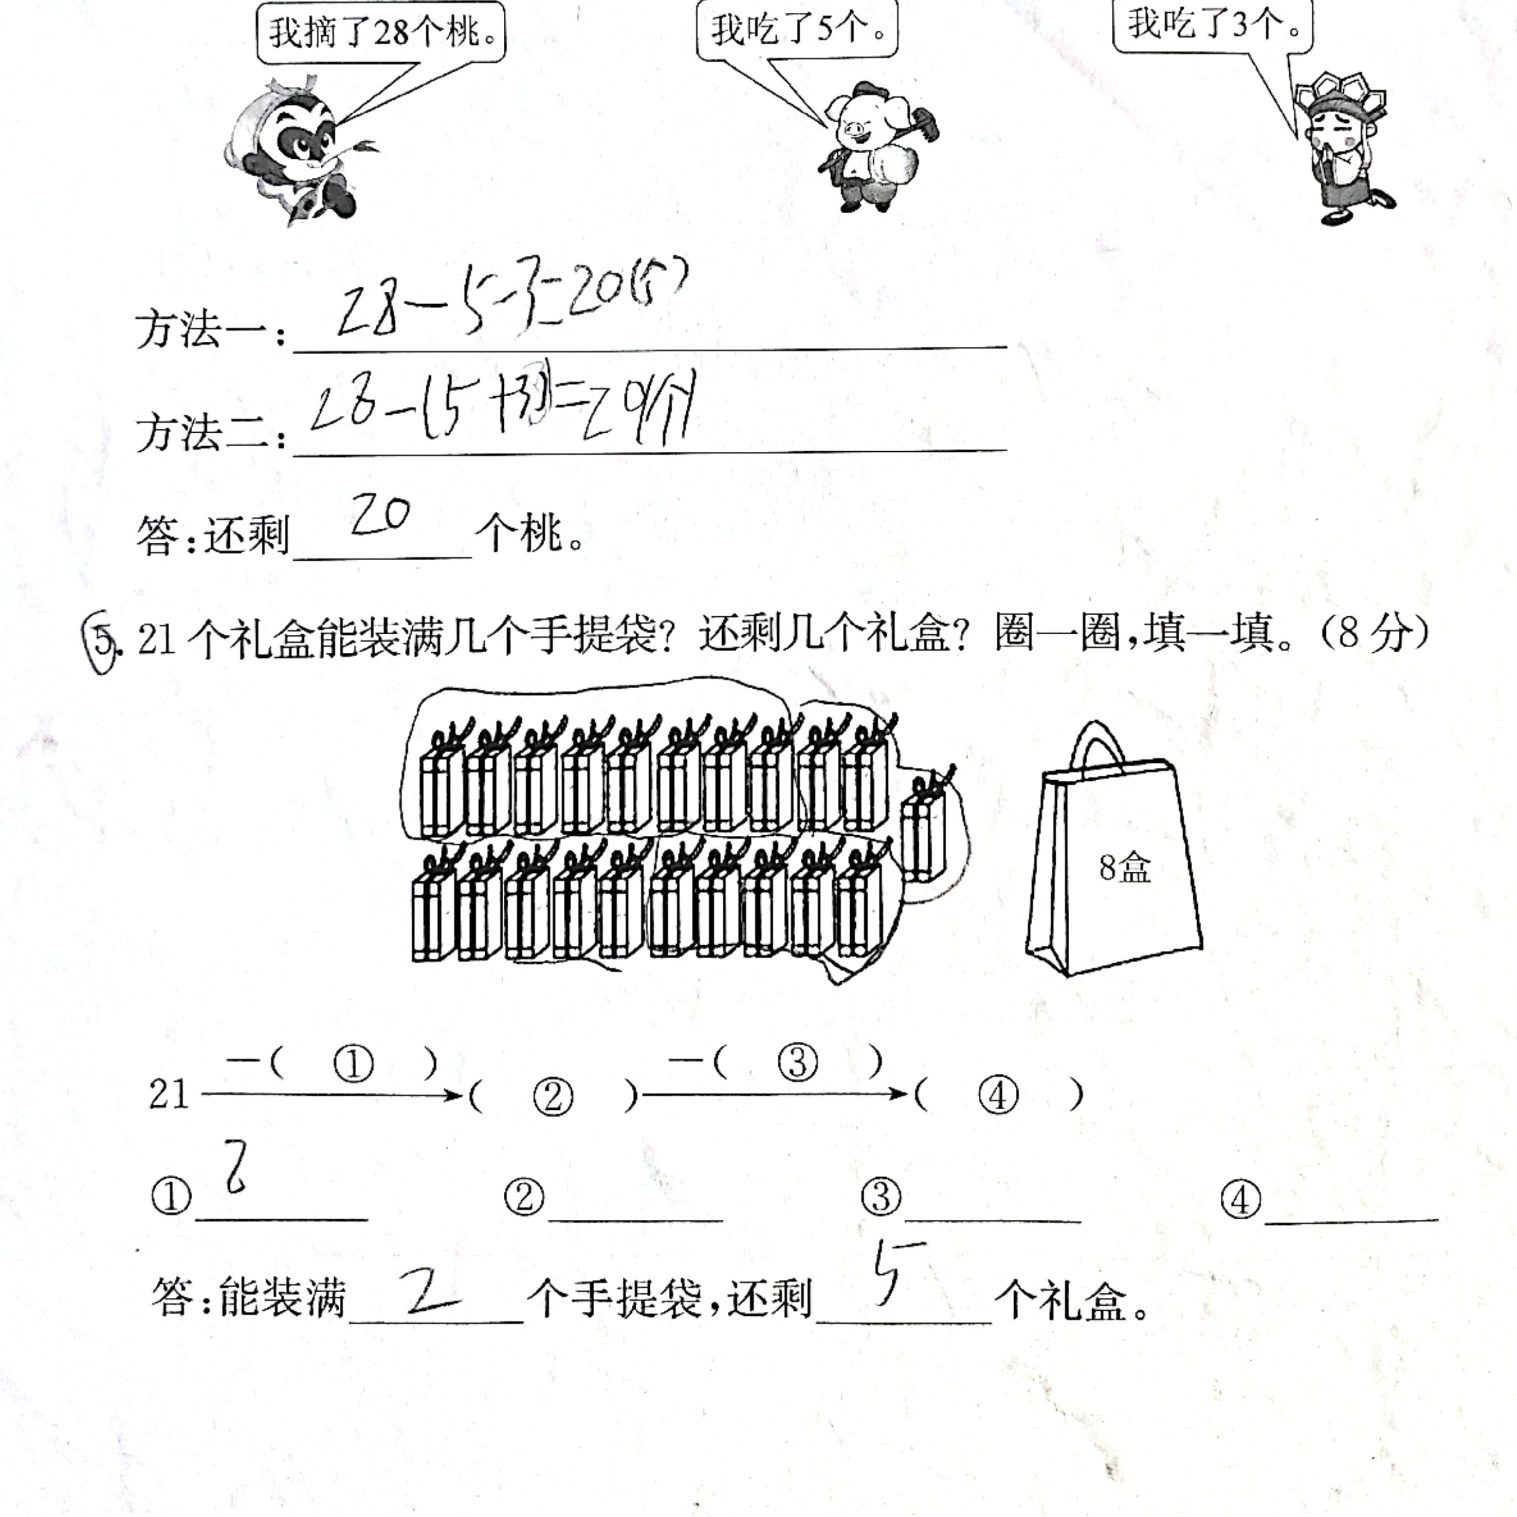 我摘了28个桃。 我吃了5个。 我吃了3个。
方法一: 28-5-3=20(个)
方法二: 28-(5+3)=20(个)
答:还剩 20 个桃。
5. 21个礼盒能装满几个手提袋? 还剩几个礼盒? 圈一圈,填一填。(8分)
8盒
-( ① ) -( ③ )
21 ( ② ) ( ④ )
① 8 ② ③ ④
答:能装满 2 个手提袋,还剩 5 个礼盒。